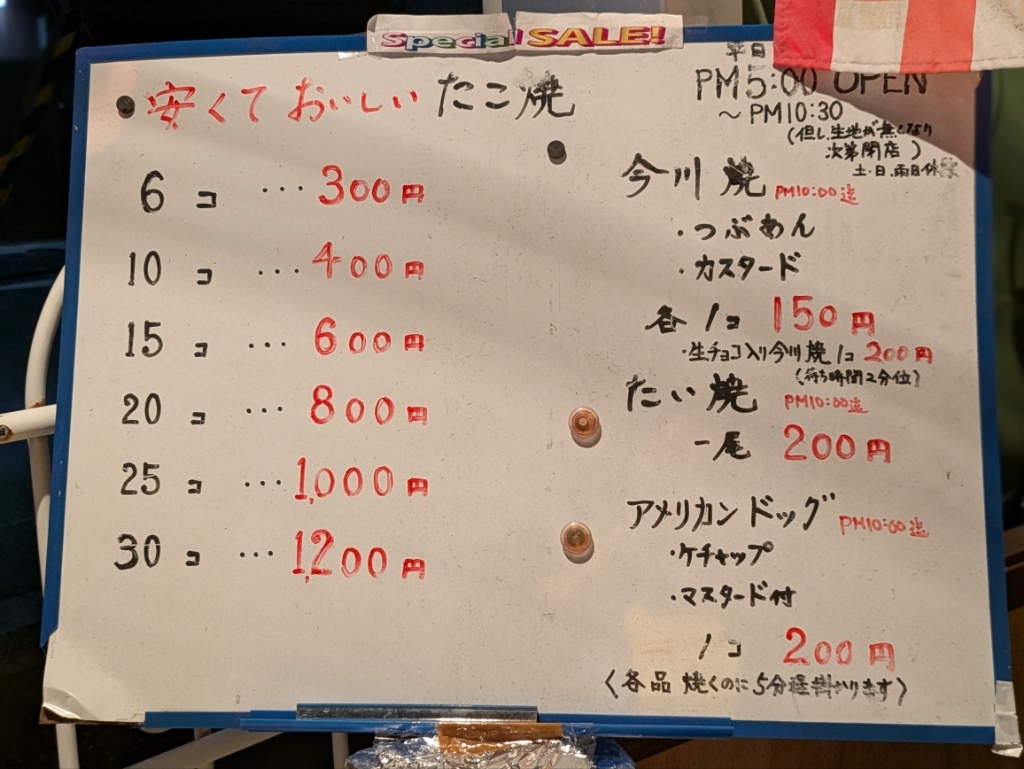 Special SALE!
安くて おいしい たこ焼
6 コ ･･･ 300円
10 コ ･･･ 400円
15 コ ･･･ 600円
20 コ ･･･ 800円
25 コ ･･･ 1,000円
30 コ ･･･ 1,200円
平日
PM5:00 OPEN
～PM10:30
(但し、生地が無くなり
次第閉店)
土・日、雨日休
今川焼 PM10:00迄
・つぶあん
・カスタード
各 1コ 150円
・生チョコ入り今川焼 1コ 200円
(待ち時間2分位)
たい焼 PM10:00迄
一尾 200円
アメリカンドッグ PM10:00迄
・ケチャップ
・マスタード付
1コ 200円
〈各品 焼くのに 5分程掛かります〉